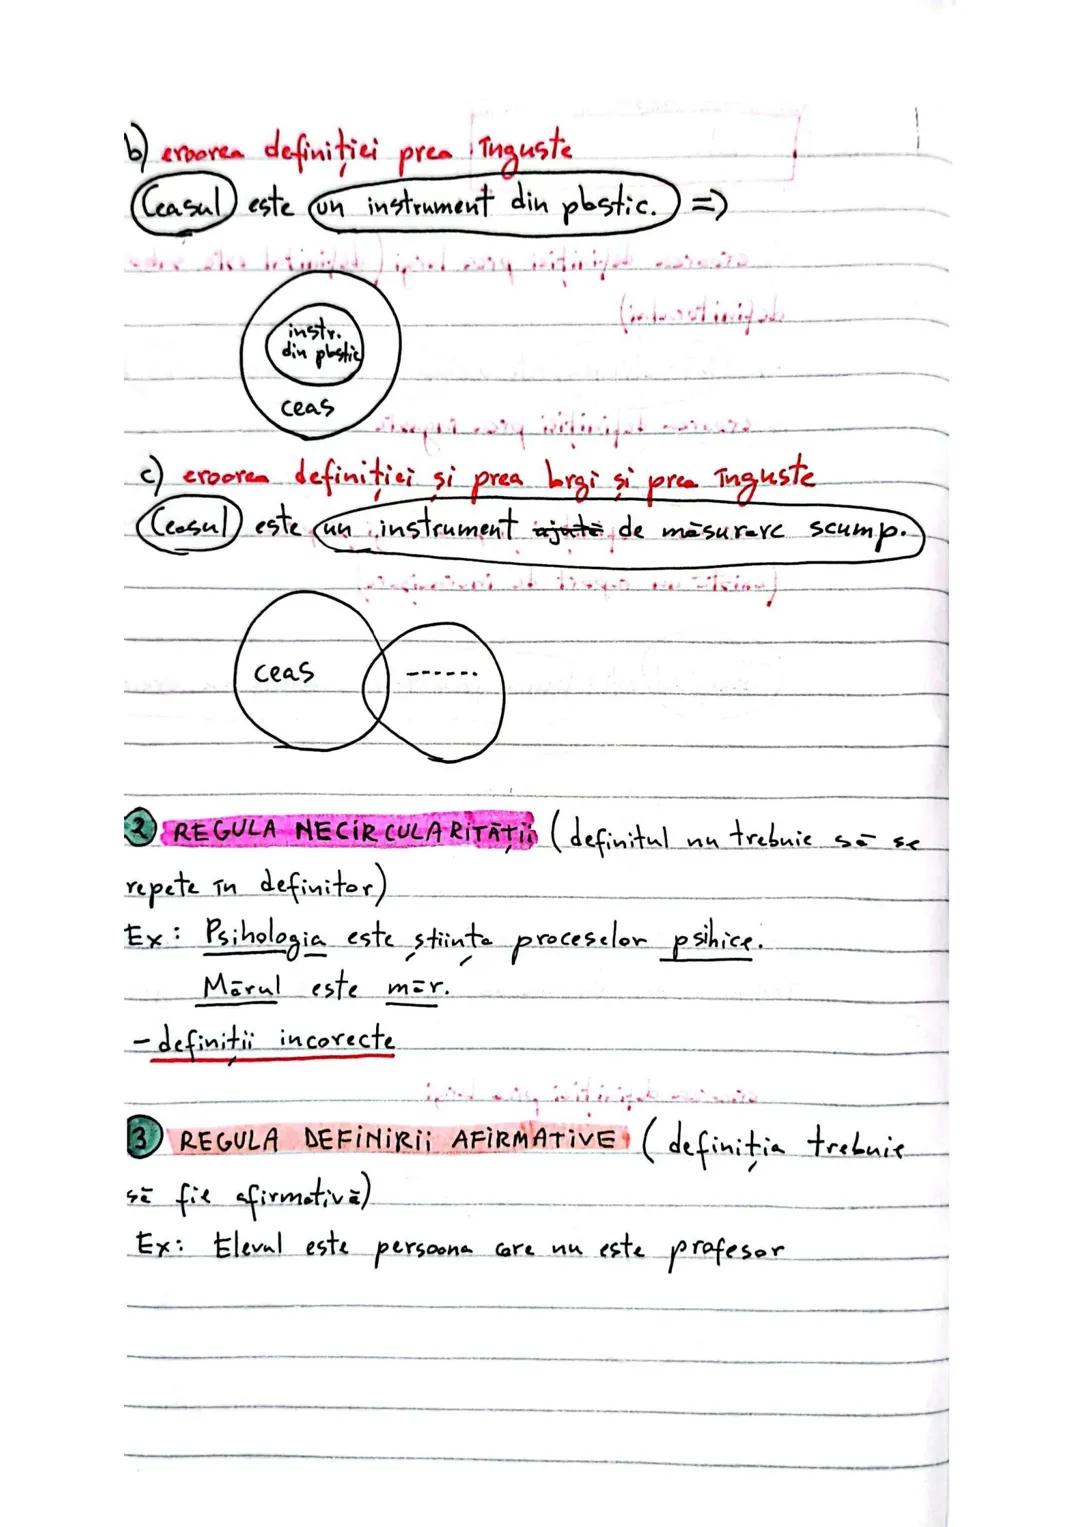 b) eroarea definiției prea înguste
Ceasul este un instrument din plastic. =>
instr.
din plastic
ceas
c) eroarea definiției și prea largi și prea înguste
Ceasul este un instrument ajută de măsurare scump.
ceas
------
2 REGULA NECIRCULARITĂȚII (definitul nu trebuie să se
repete în definitor)
Ex: Psihologia este știința proceselor psihice.
Mărul este măr.
- definiții incorecte
3 REGULA DEFINIRII AFIRMATIVE (definiția trebuie
să fie afirmativă)
Ex: Elevul este persoana care nu este profesor